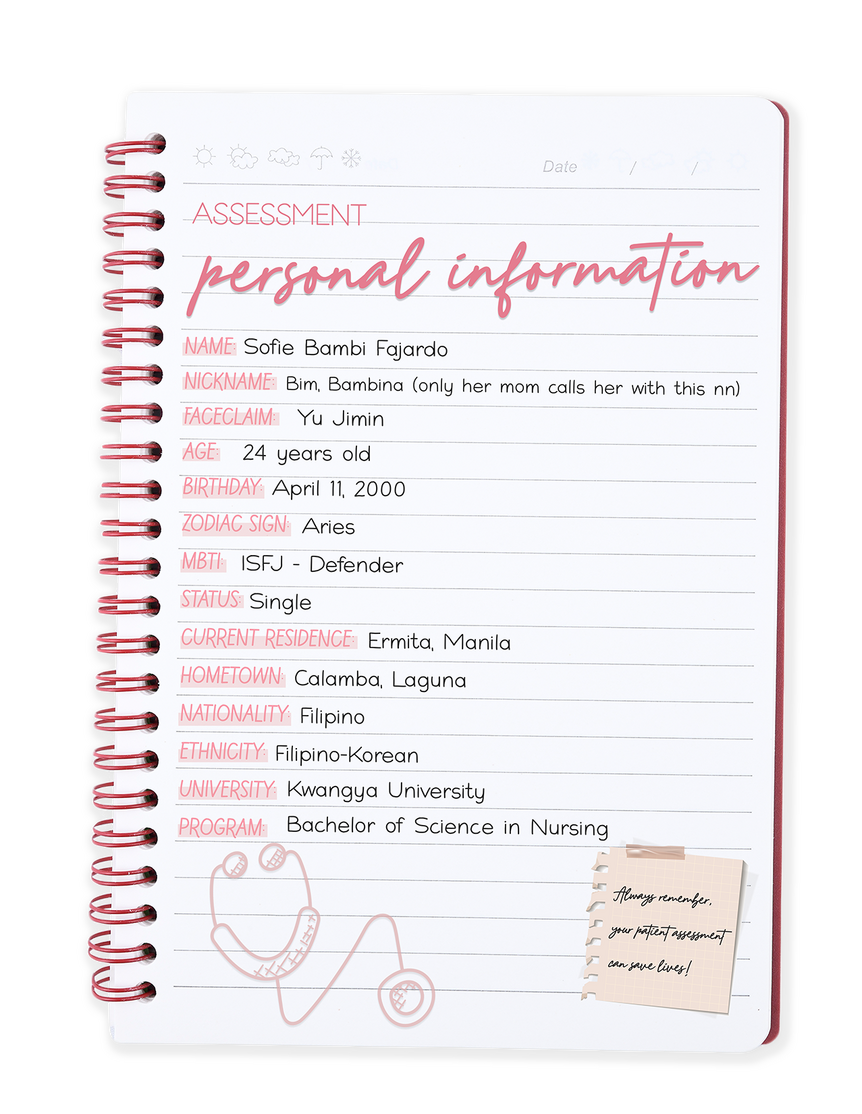 Date / /
ASSESSMENT
personal information
NAME: Sofie Bambi Fajardo
NICKNAME: Bim, Bambina (only her mom calls her with this nn)
FACECLAIM: Yu Jimin
AGE: 24 years old
BIRTHDAY: April 11, 2000
ZODIAC SIGN: Aries
MBTI: ISFJ - Defender
STATUS: Single
CURRENT RESIDENCE: Ermita, Manila
HOMETOWN: Calamba, Laguna
NATIONALITY: Filipino
ETHNICITY: Filipino-Korean
UNIVERSITY: Kwangya University
PROGRAM: Bachelor of Science in Nursing
Always remember,
your patient assessment
can save lives!